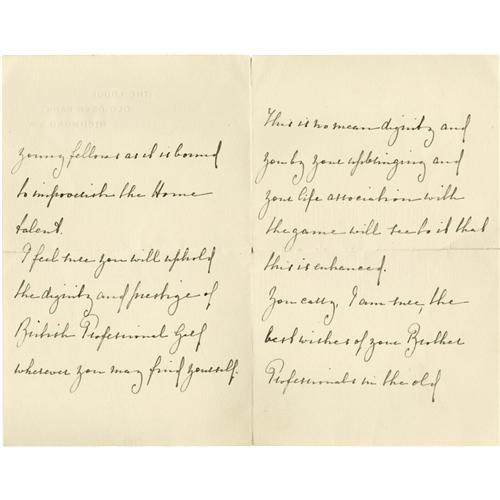 young fellows as it is bound
to impoverish the Home
talent.
I feel sure you will uphold
the dignity and prestige of
British Professional Golf
wherever you may find yourself.
This is no mean dignity and
you by your upbringing and
your life association with
the game will see to it that
this is enhanced.
You carry, I am sure, the
best wishes of your Brother
Professionals in the old